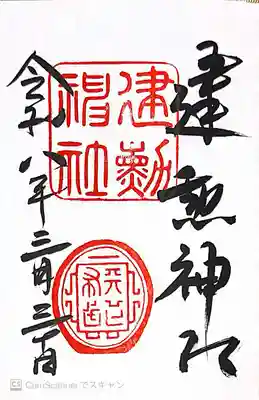 建勲神社
建勲
神社
天下布武
令和八年三月三日
CS CamScanner でスキャン